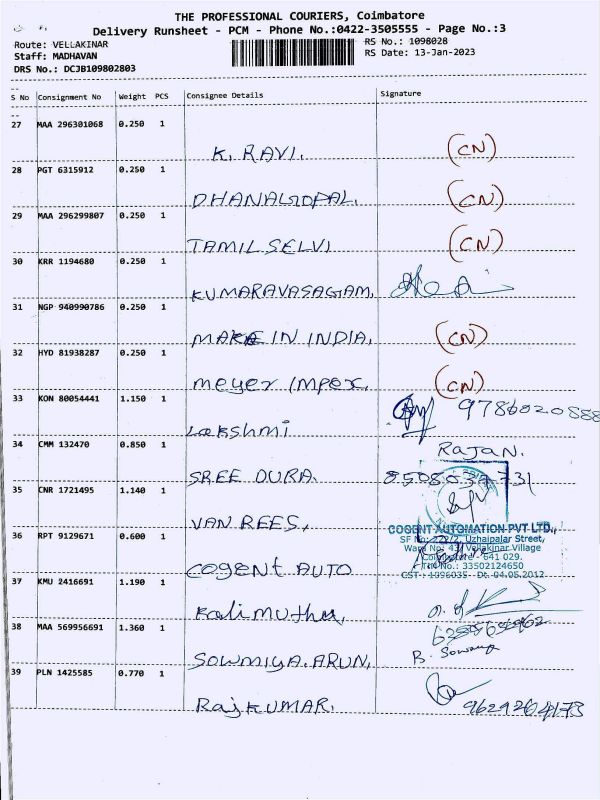 THE PROFESSIONAL COURIERS, Coimbatore
Delivery Runsheet - PCM - Phone No.:0422-3505555 - Page No.:3
Route: VELLAKINAR RS No.: 1098028
Staff: MADHAVAN RS Date: 13-Jan-2023
DRS No.: DCJB109802803
S No Consignment No Weight PCS Consignee Details Signature
27 MAA 296301068 0.250 1
K. RAVI. (CN)
28 PGT 6315912 0.250 1
DHANAGOPAL. (CN)
29 MAA 296299807 0.250 1
TAMILSELVI (CN)
30 KRR 1194680 0.250 1
KUMARAVASAGAM.
31 NGP 940990786 0.250 1
MAKE IN INDIA. (CN)
32 HYD 81938287 0.250 1
meyer Impex. (CN)
33 KON 80054441 1.150 1
Lakshmi 9786020888
34 CMM 132470 0.850 1 RAJAN.
SREE DURA.
35 CNR 1721495 1.140 1
VAN REES,
COGENT AUTOMATION PVT LTD.,
36 RPT 9129671 0.600 1
Uzhaipalar Street,
Vellakinar Village
641 029.
33502124650
CST : 1096035 Dt. 04.05.2012
COGENT AUTO
37 KMU 2416691 1.190 1
Kalimuthu,
38 MAA 569956691 1.360 1
B. Sowmya
SOWMIYA.ARUN,
39 PLN 1425585 0.770 1
RajKUMAR. 9629204173